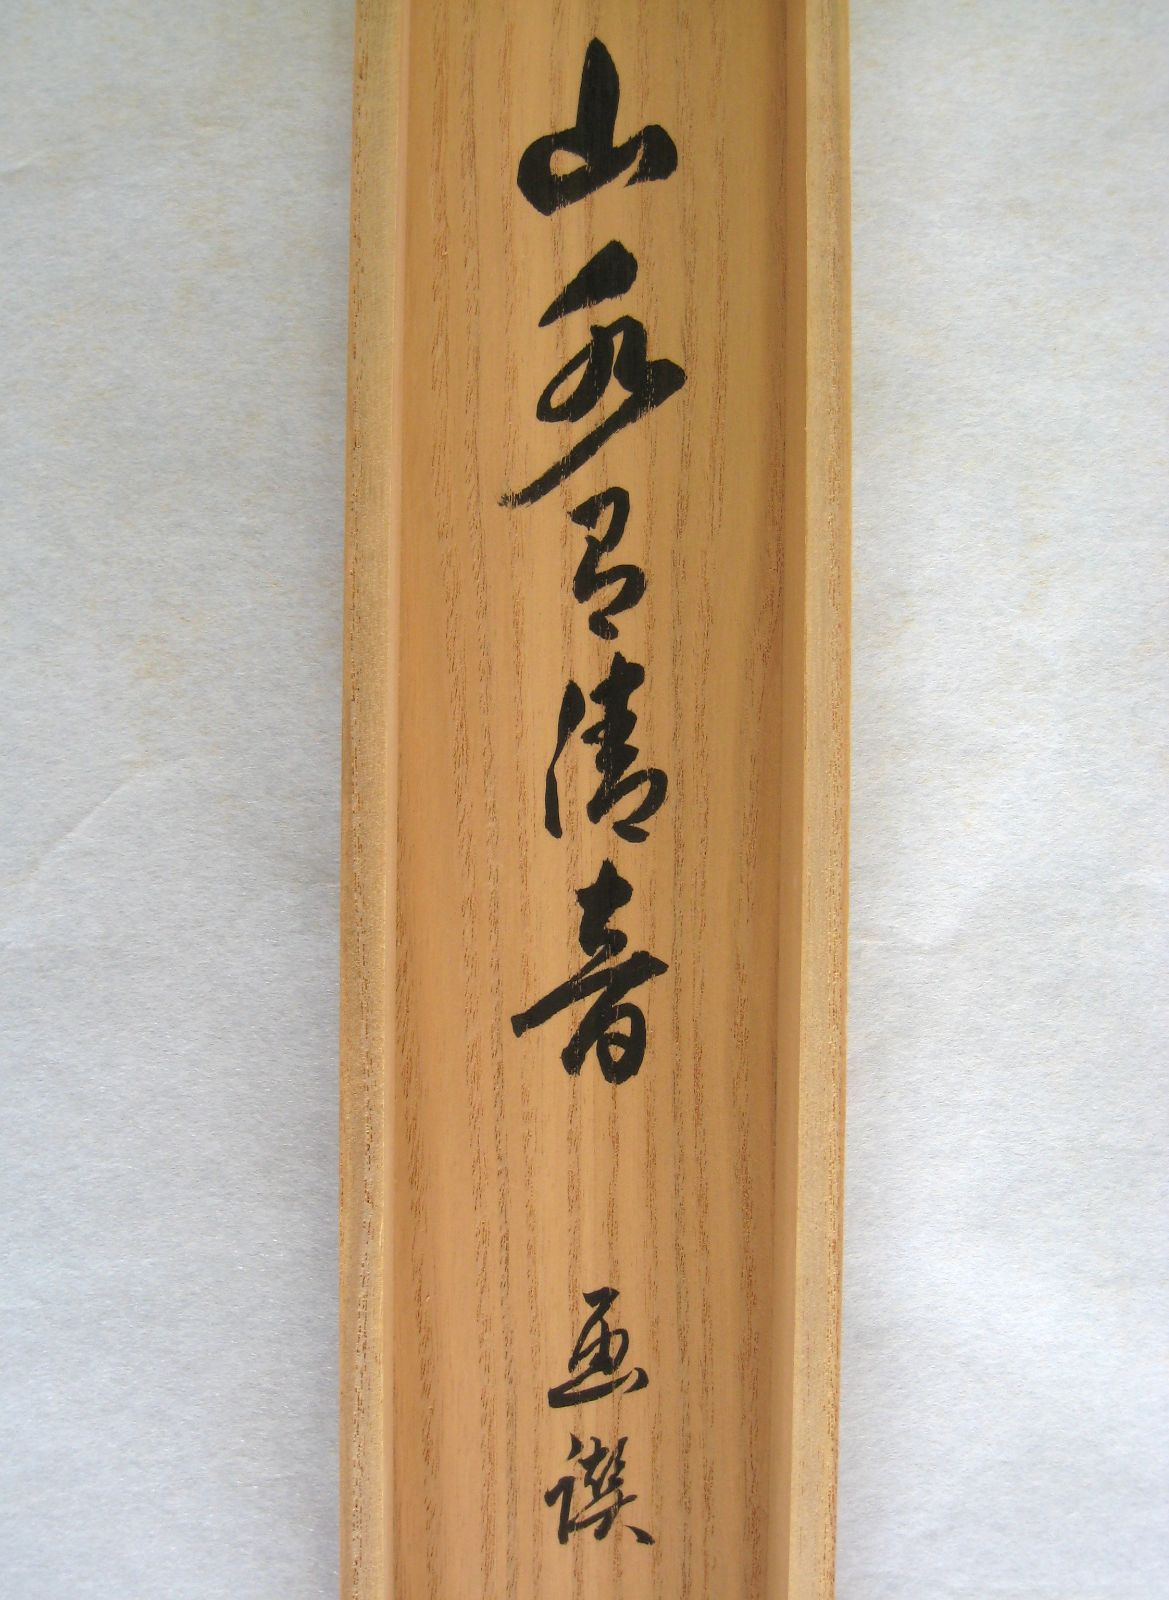 山水有清音 画讃